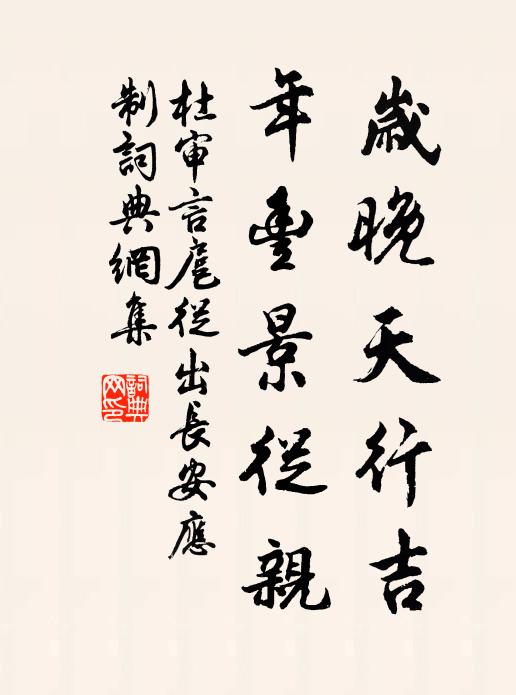 歲晚天行吉
年豐景從親
杜審言扈從出長安應
制詞典網集
詞典
网印